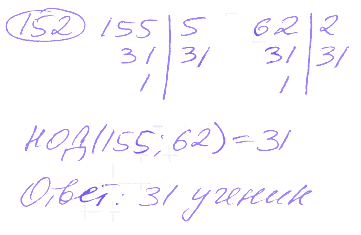 152 155 | 5 62 | 2
31 | 31 31 | 31
1 | 1 |
НОД(155; 62) = 31
Ответ: 31 ученик